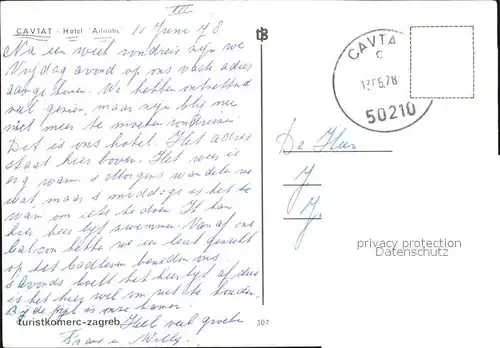 III
CAVTAT - Hotel Adriatic 11 Juni 78
Na een week rondreis zijn we
Vrijdag avond op ons vaste adres
aangekomen. We hebben ontzettend
veel gezien, maar zijn blij nu
niet meer te moeten
Dit is ons hotel. Het adres
staat hier boven. Het weer is
erg warm. s Morgens wandelen we
wat maar s middags is het te
warm om iets te doen. Je kan
hier heerlijk zwemmen. Van af ons
balcon hebben we een leuk gezicht
op het badleven beneden ons.
s Avonds koelt het heerlijk af dus
is het hier wel om uit te houden.
Bij de pijl is onze kamer.
turistkomerc-zagreb Heel veel groeten 307
Frans en Willy
CAVTA
C
13.6.78
50210
De Heer
J
J
privacy protection watermark
Datenschutz